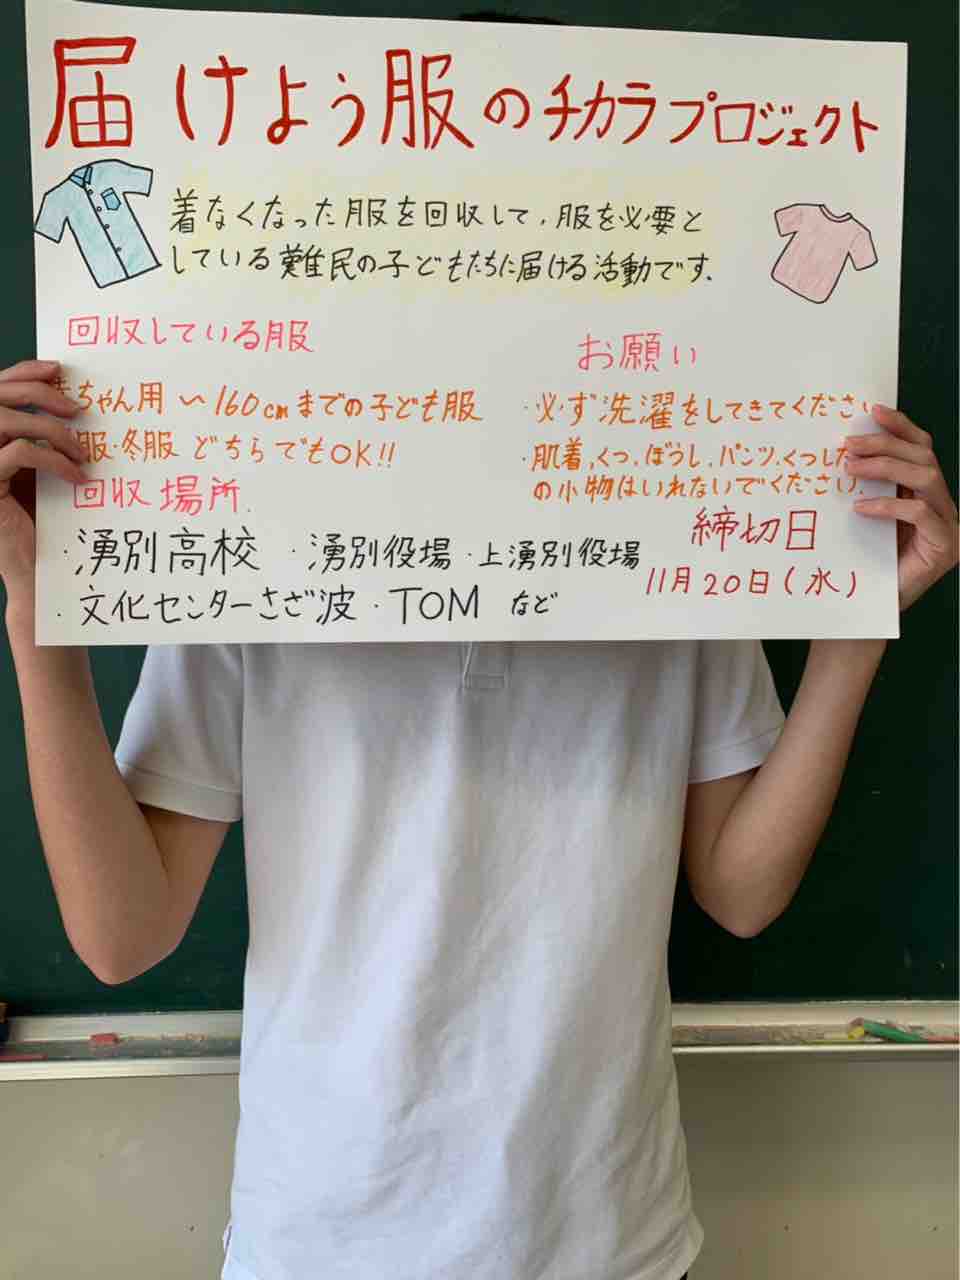 届けよう服のチカラプロジェクト
着なくなった服を回収して、服を必要と
している難民の子どもたちに届ける活動です。
回収している服
ちゃん用〜160cmまでの子ども服
服・冬服 どちらでもOK!!
お願い
・必ず洗濯をしてきてください
・肌着、くつ、ぼうし、パンツ、くつした
の小物はいれないでください。
回収場所
・湧別高校 ・湧別役場 ・上湧別役場
・文化センターさざ波 ・TOM など
締切日
11月20日(水)